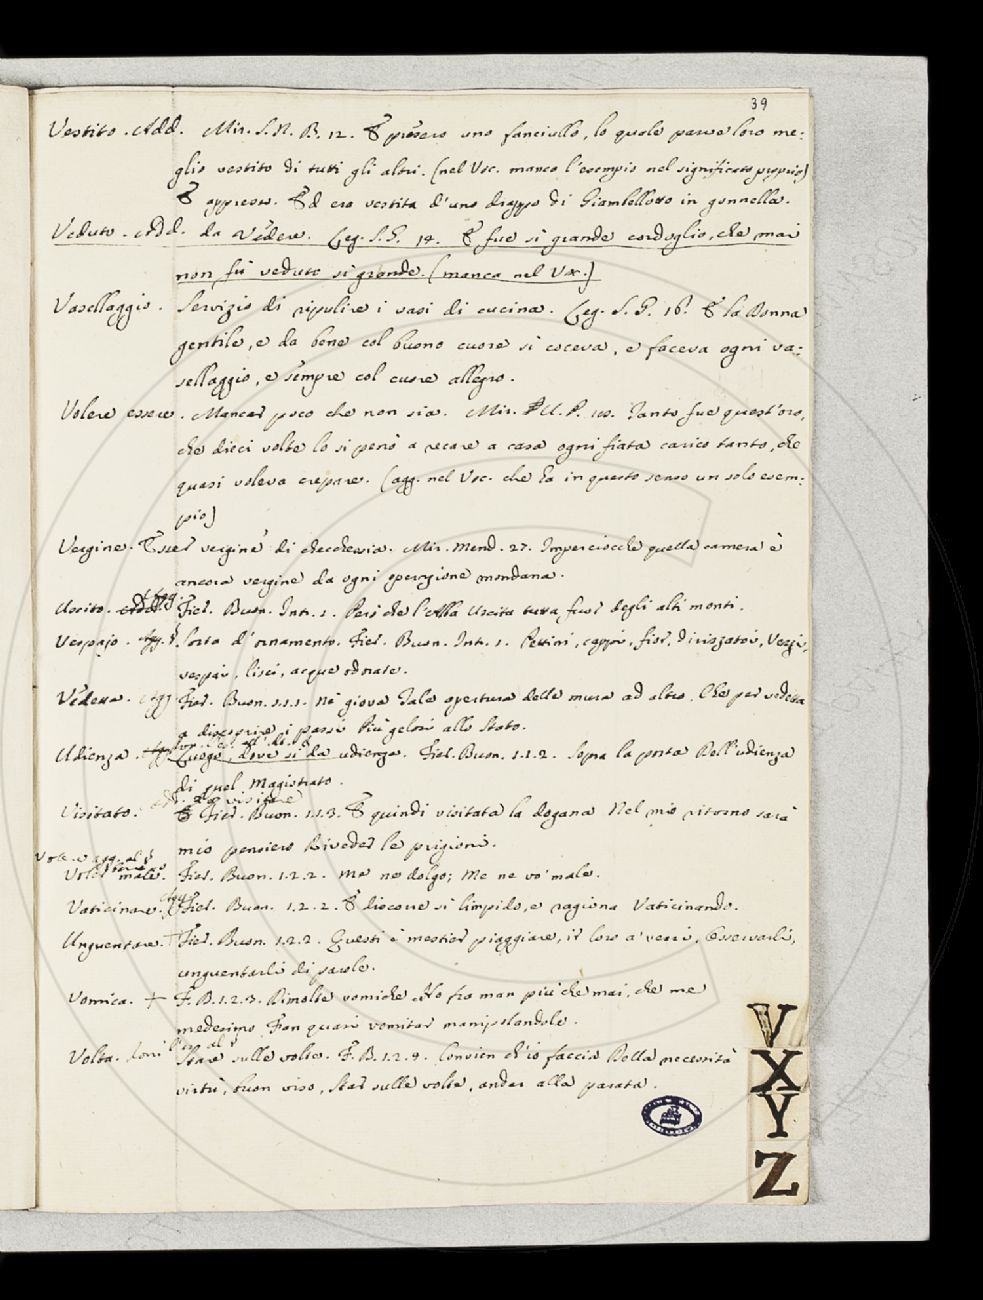 39
Vestito. Add. Mir. S. M. B. 12. E presero uno fanciullo, lo quale parve loro me:
glio vestito di tutti gli altri. (nel Voc. manca l'esempio nel significato proprio)
E appresso. Ed era vestita d'uno drappo di Giambellotto in gonnella.
Veduto. Add. da Vedere. Leg. S. G. 14. E fue si grande cordoglio, che mai
non fù veduto si grande. (manca nel Voc.)
Vasellaggio. Servizio di ripulire i vasi di cucina. Leg. S. G. 16. E la Donna
gentile, e da bene col buono cuore si coceva, e faceva ogni va:
sellaggio, e sempre col cuore allegro.
Volere essere. Mancar poco che non sia. Mir. M. P. Tanto fue quest'oro,
che dieci volte lo si penò a recare a casa ogni fiata carico tanto, che
quasi voleva crepare. (agg. nel Voc. che ha in questo senso un solo esem:
pio)
Vergine. Esser vergine di checchessia. Mir. Mend. 27. Imperciocche quella camera è
ancora vergine da ogni operazione mondana.
Uscito. Fier. Buon. Int. 1. Però che l'Alba Uscita tutta fuor degli alti monti.
Vespajo. Agg. §. Sorta d'ornamento. Fier. Buon. Int. 1. Pettini, cappi, fior, dirizzatoi, Vezzi,
vespai, lisci, acque odorate.
Vedetta. Agg. Fier. Buon. 1.1.1. Ne giova Tale apertura delle mura ad altro, Che per vedetta
a discoprire i passi Più gelosi allo Stato.
Udienza. Luogo, dove si da udienza. Fier. Buon. 1.1.2. Sopra la porta Dell'udienza
di quel Magistrato.
Add. da visitare
Visitato. E Fier. Buon. 1.1.3. E quindi visitata la dogana Nel mio ritorno sarà
mio pensiero Riveder le prigioni.
Voler male. Fier. Buon. 1.2.2. Me ne dolgo; Me ne vo' male.
Vaticinare. Agg. Fier. Buon. 1.2.2. E discorre si limpido, e ragiona Vaticinando.
Unguentare. + Fier. Buon. 1.2.2. Questi è mestier piaggiare, ir loro a' versi, Osservarli,
unguentarli di parole.
Vomica. + F. B. 1.2.3. Rimolte vomiche Ho fra man più che mai, che me
medesimo Fan quasi vomitar manipolandole.
Volta. Stare sulle volte. F. B. 1.2.4. Convien ch'io faccia Della necessità
virtù, buon viso, Star sulle volte, andar alla parata.
V
X
Y
Z